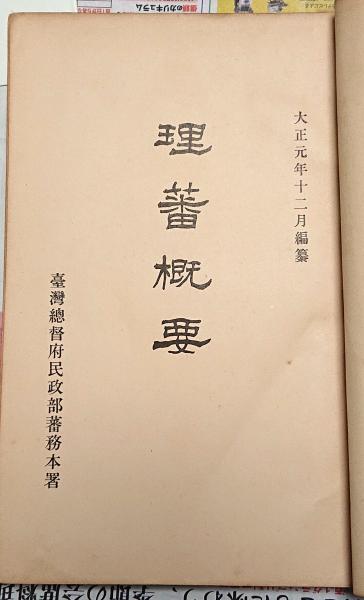 大正元年十二月編纂
理蕃概要
臺灣總督府民政部蕃務本署